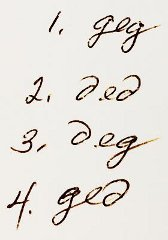 1. geg
2. ded
3. deg
4. ged